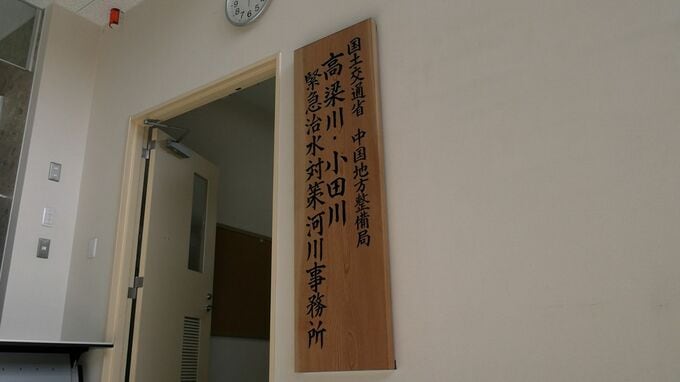 国土交通省 中国地方整備局
高梁川・小田川
緊急治水対策河川事務所